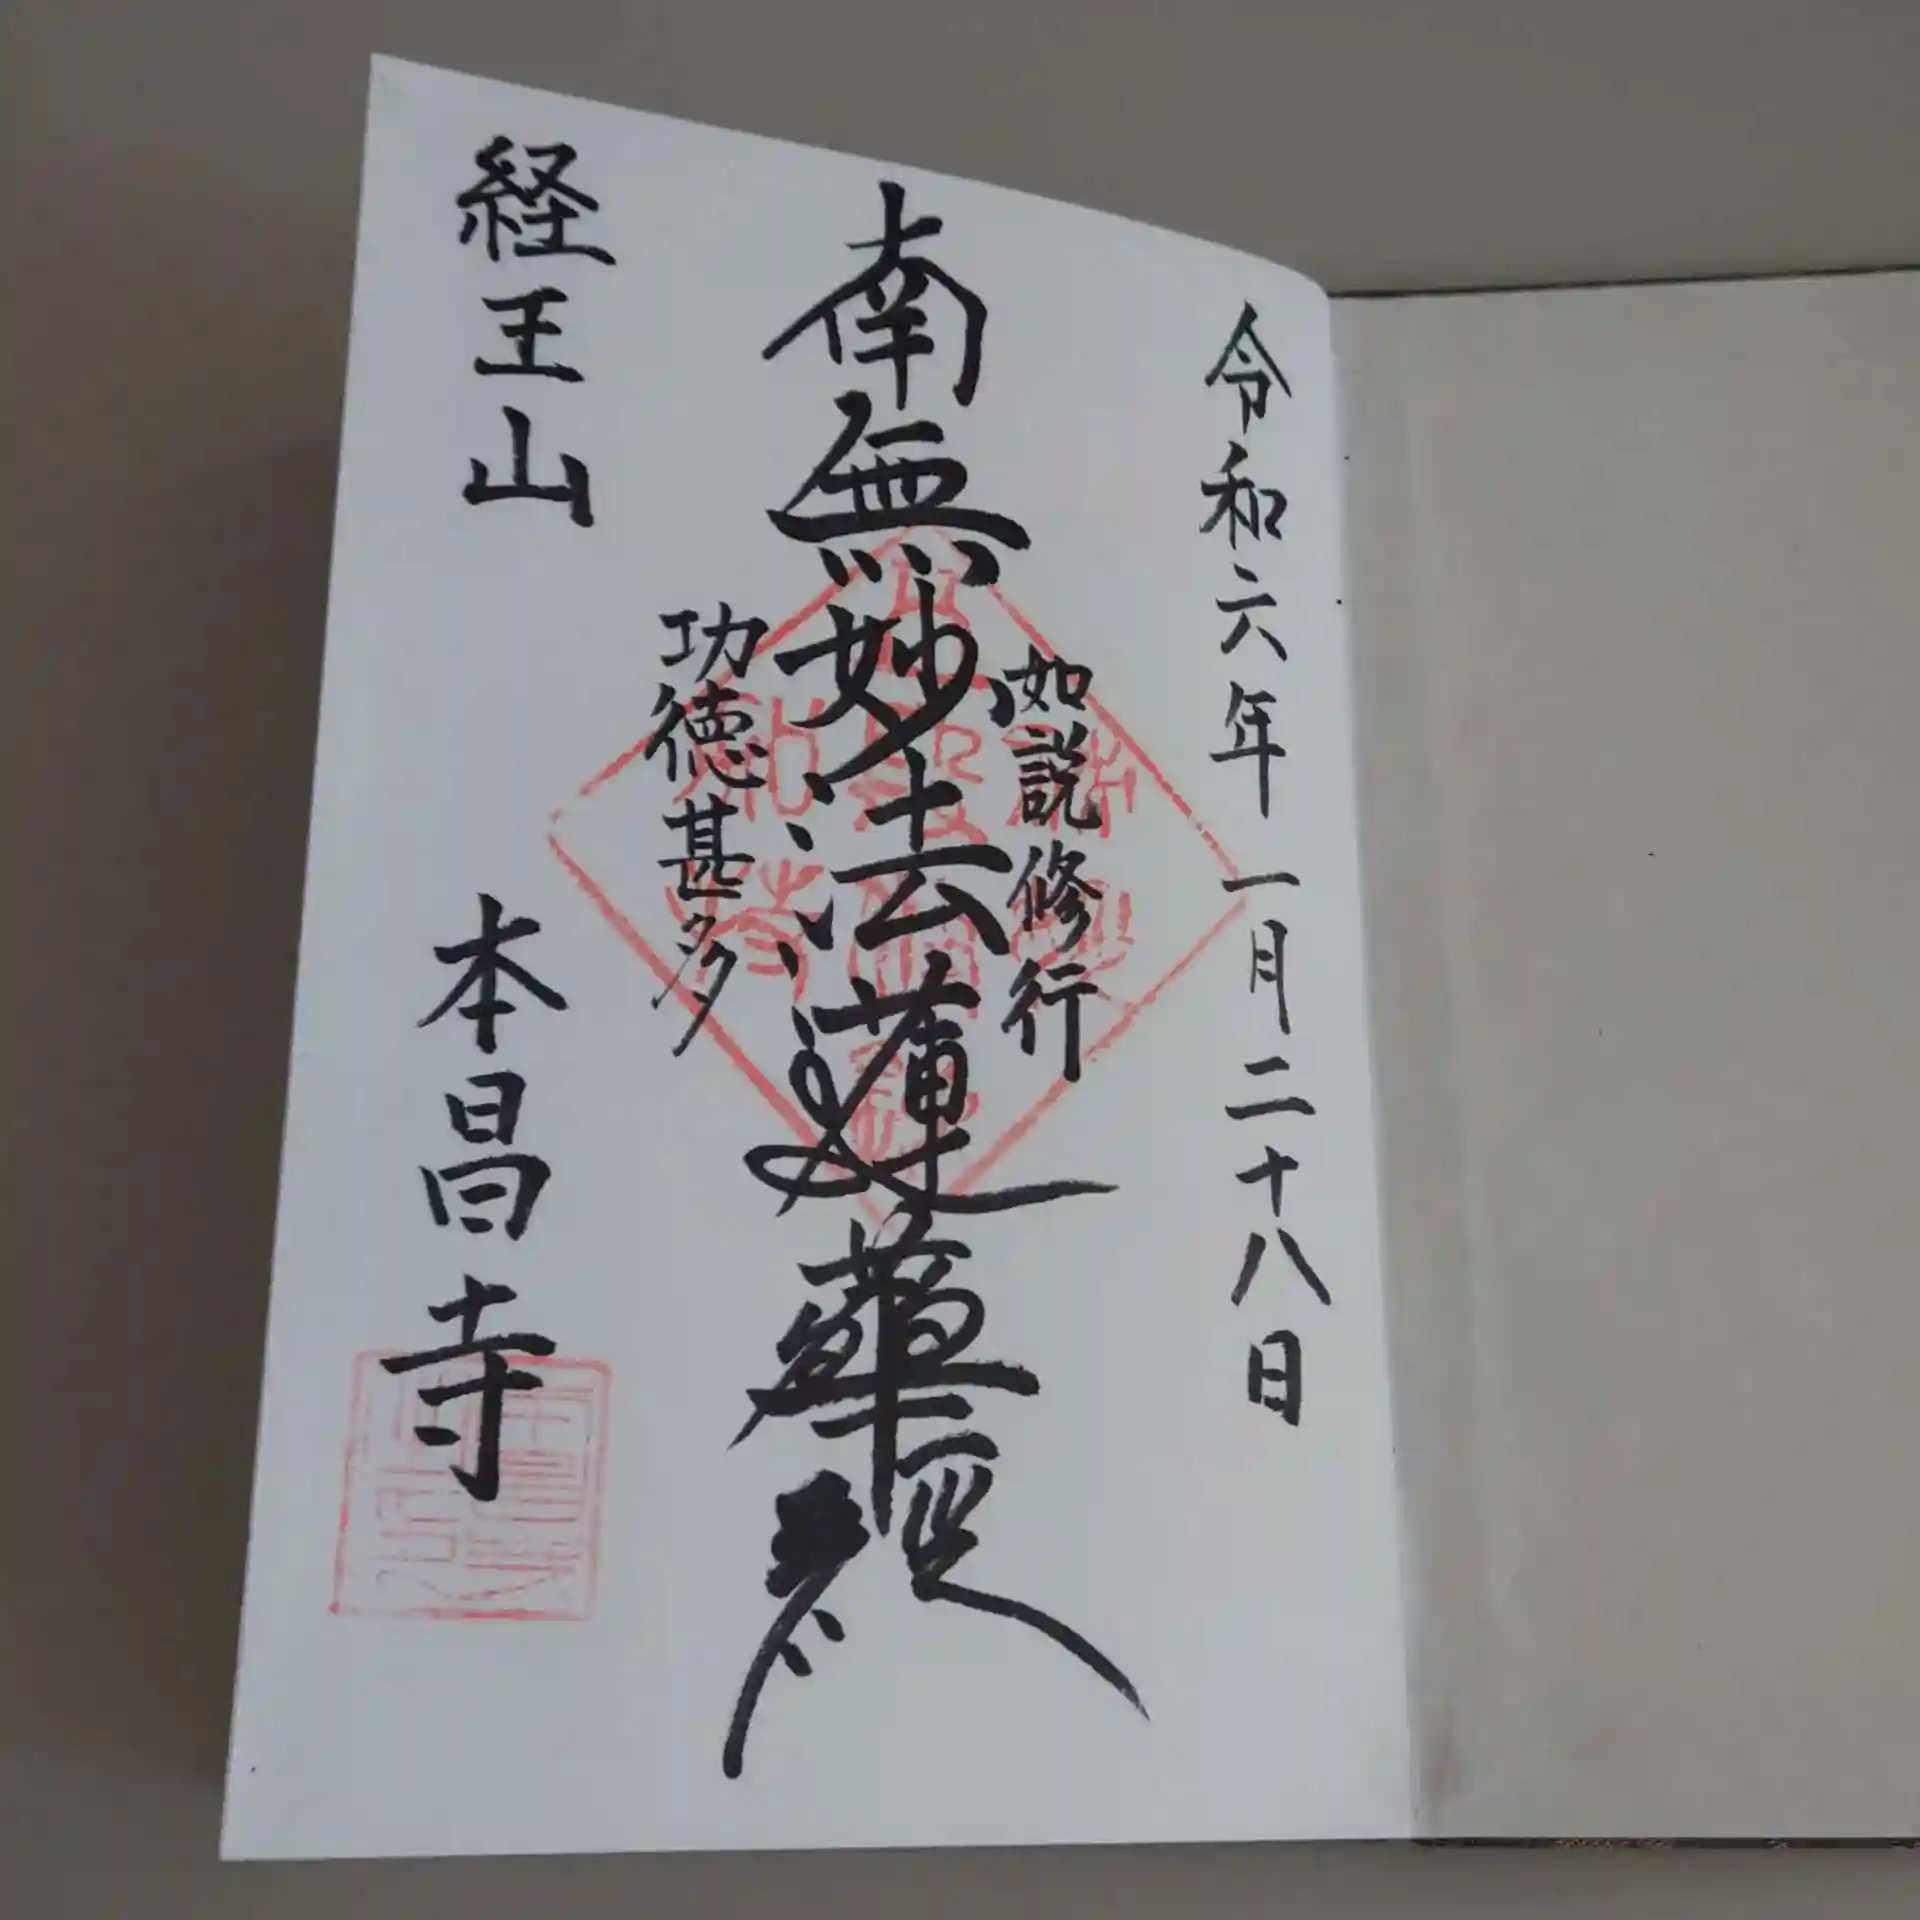 令和六年一月二十八日
如説修行
南無妙法蓮華経
功徳甚多
経王山
本昌寺